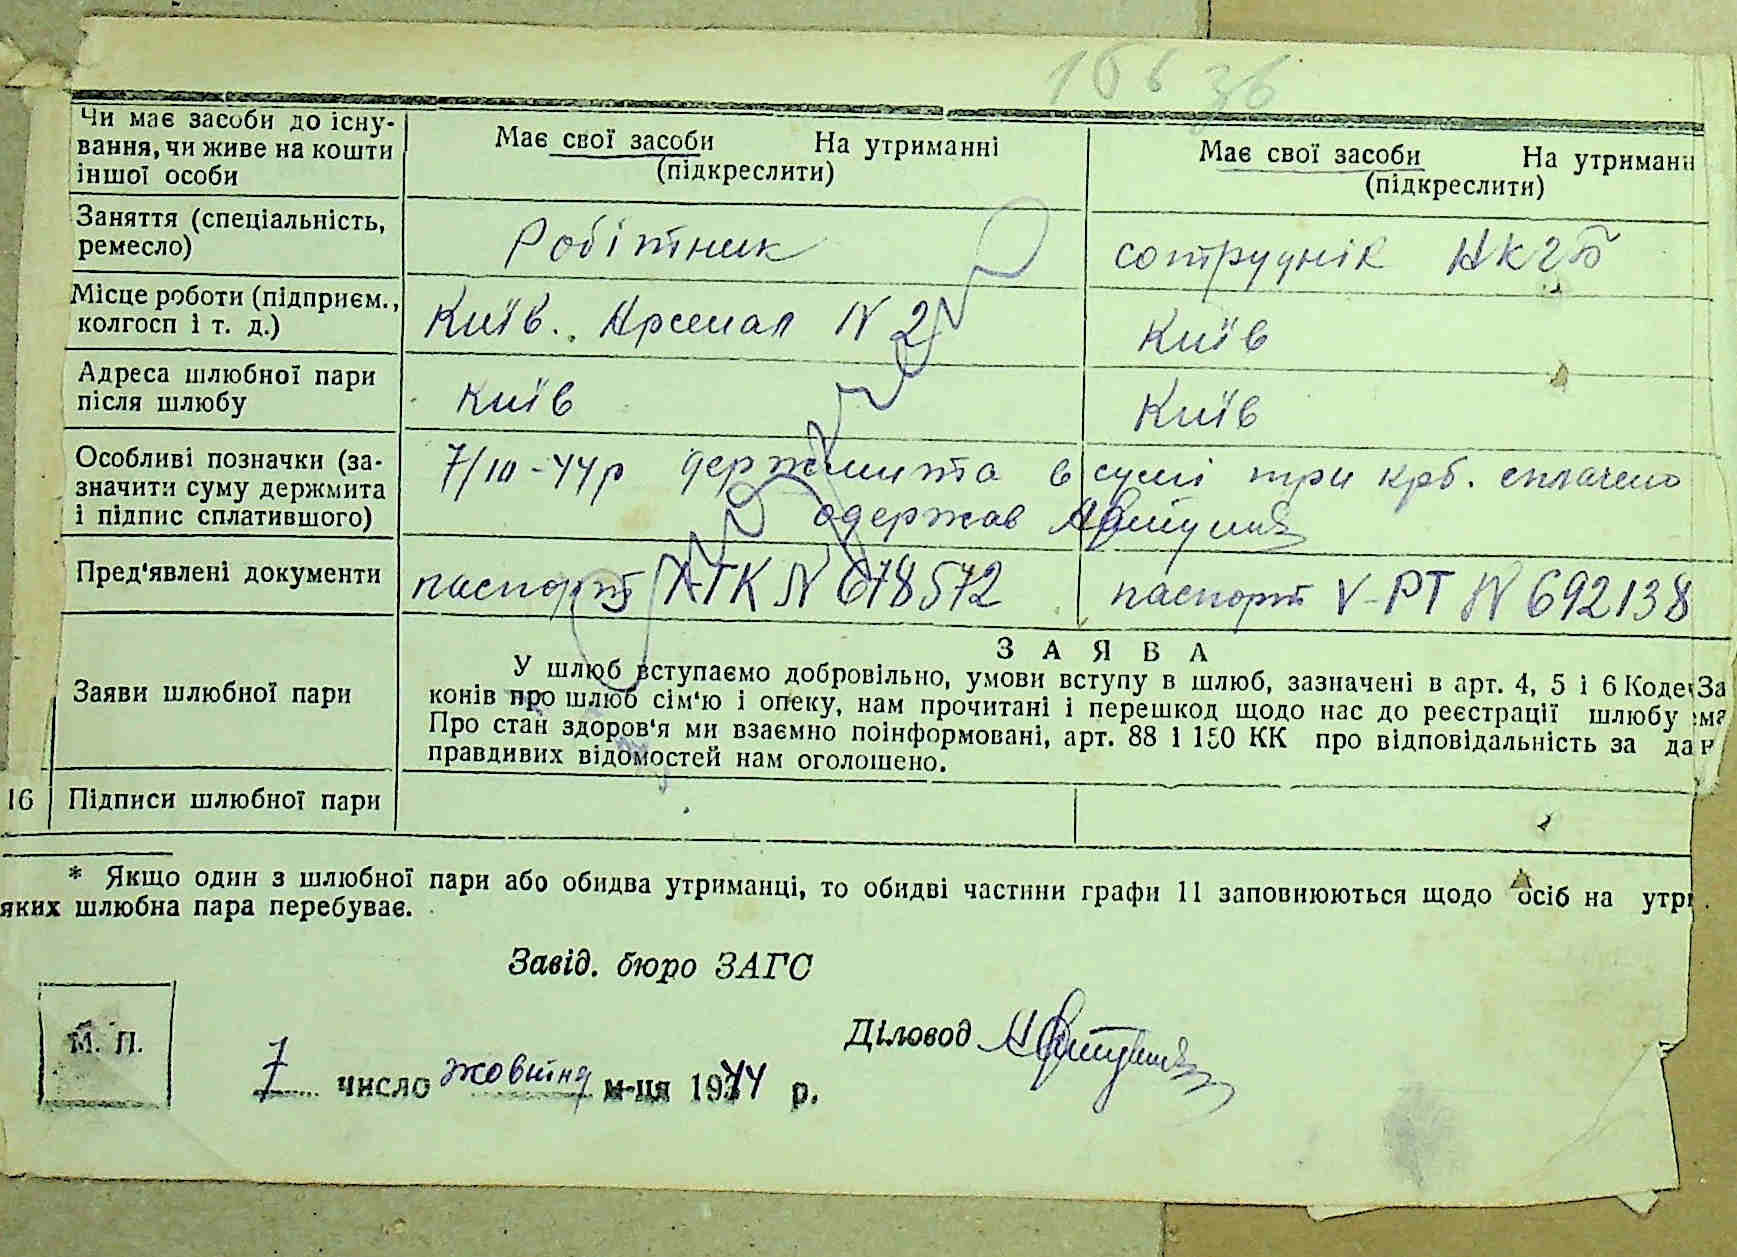 166 зв
Чи має засоби до існу-
вання, чи живе на кошти
іншої особи
Має свої засоби На утриманні
(підкреслити)
Має свої засоби На утриманн
(підкреслити)
Заняття (спеціальність,
ремесло)
Робітник
сотруднік НКГБ
Місце роботи (підприєм.,
колгосп і т. д.)
Київ. Арсенал N 2
Київ
Адреса шлюбної пари
після шлюбу
Київ
Київ
Особливі позначки (за-
значити суму держмита
і підпис сплатившого)
7/III-44р держмита в сумі три крб. сплачено
одержав
Пред'явлені документи
паспорт АТК N 678572
паспорт V-РТ N 692138
Заяви шлюбної пари
ЗАЯВА
У шлюб вступаємо добровільно, умови вступу в шлюб, зазначені в арт. 4, 5 і 6 Коде За
конів про шлюб сім'ю і опеку, нам прочитані і перешкод щодо нас до реєстрації шлюбу ма
Про стан здоров'я ми взаємно поінформовані, арт. 88 і 150 КК про відповідальність за да н
правдивих відомостей нам оголошено.
16 Підписи шлюбної пари
* Якщо один з шлюбної пари або обидва утриманці, то обидві частини графи 11 заповнюються щодо осіб на утр
яких шлюбна пара перебуває.
Завід. бюро ЗАГС
Діловод
М. П.
7 число жовтня м-ця 1944 р.